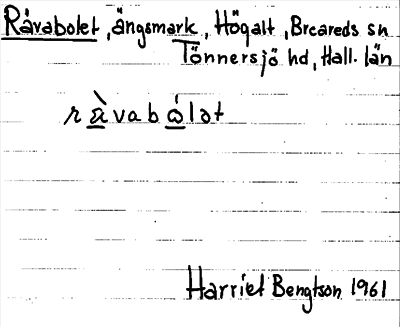 Råvabolet, ängsmark, Högalt, Breareds sn
Tönnersjö hd, Hall. län
r å̀vab ó̲lət
Harriet Bengtson 1961